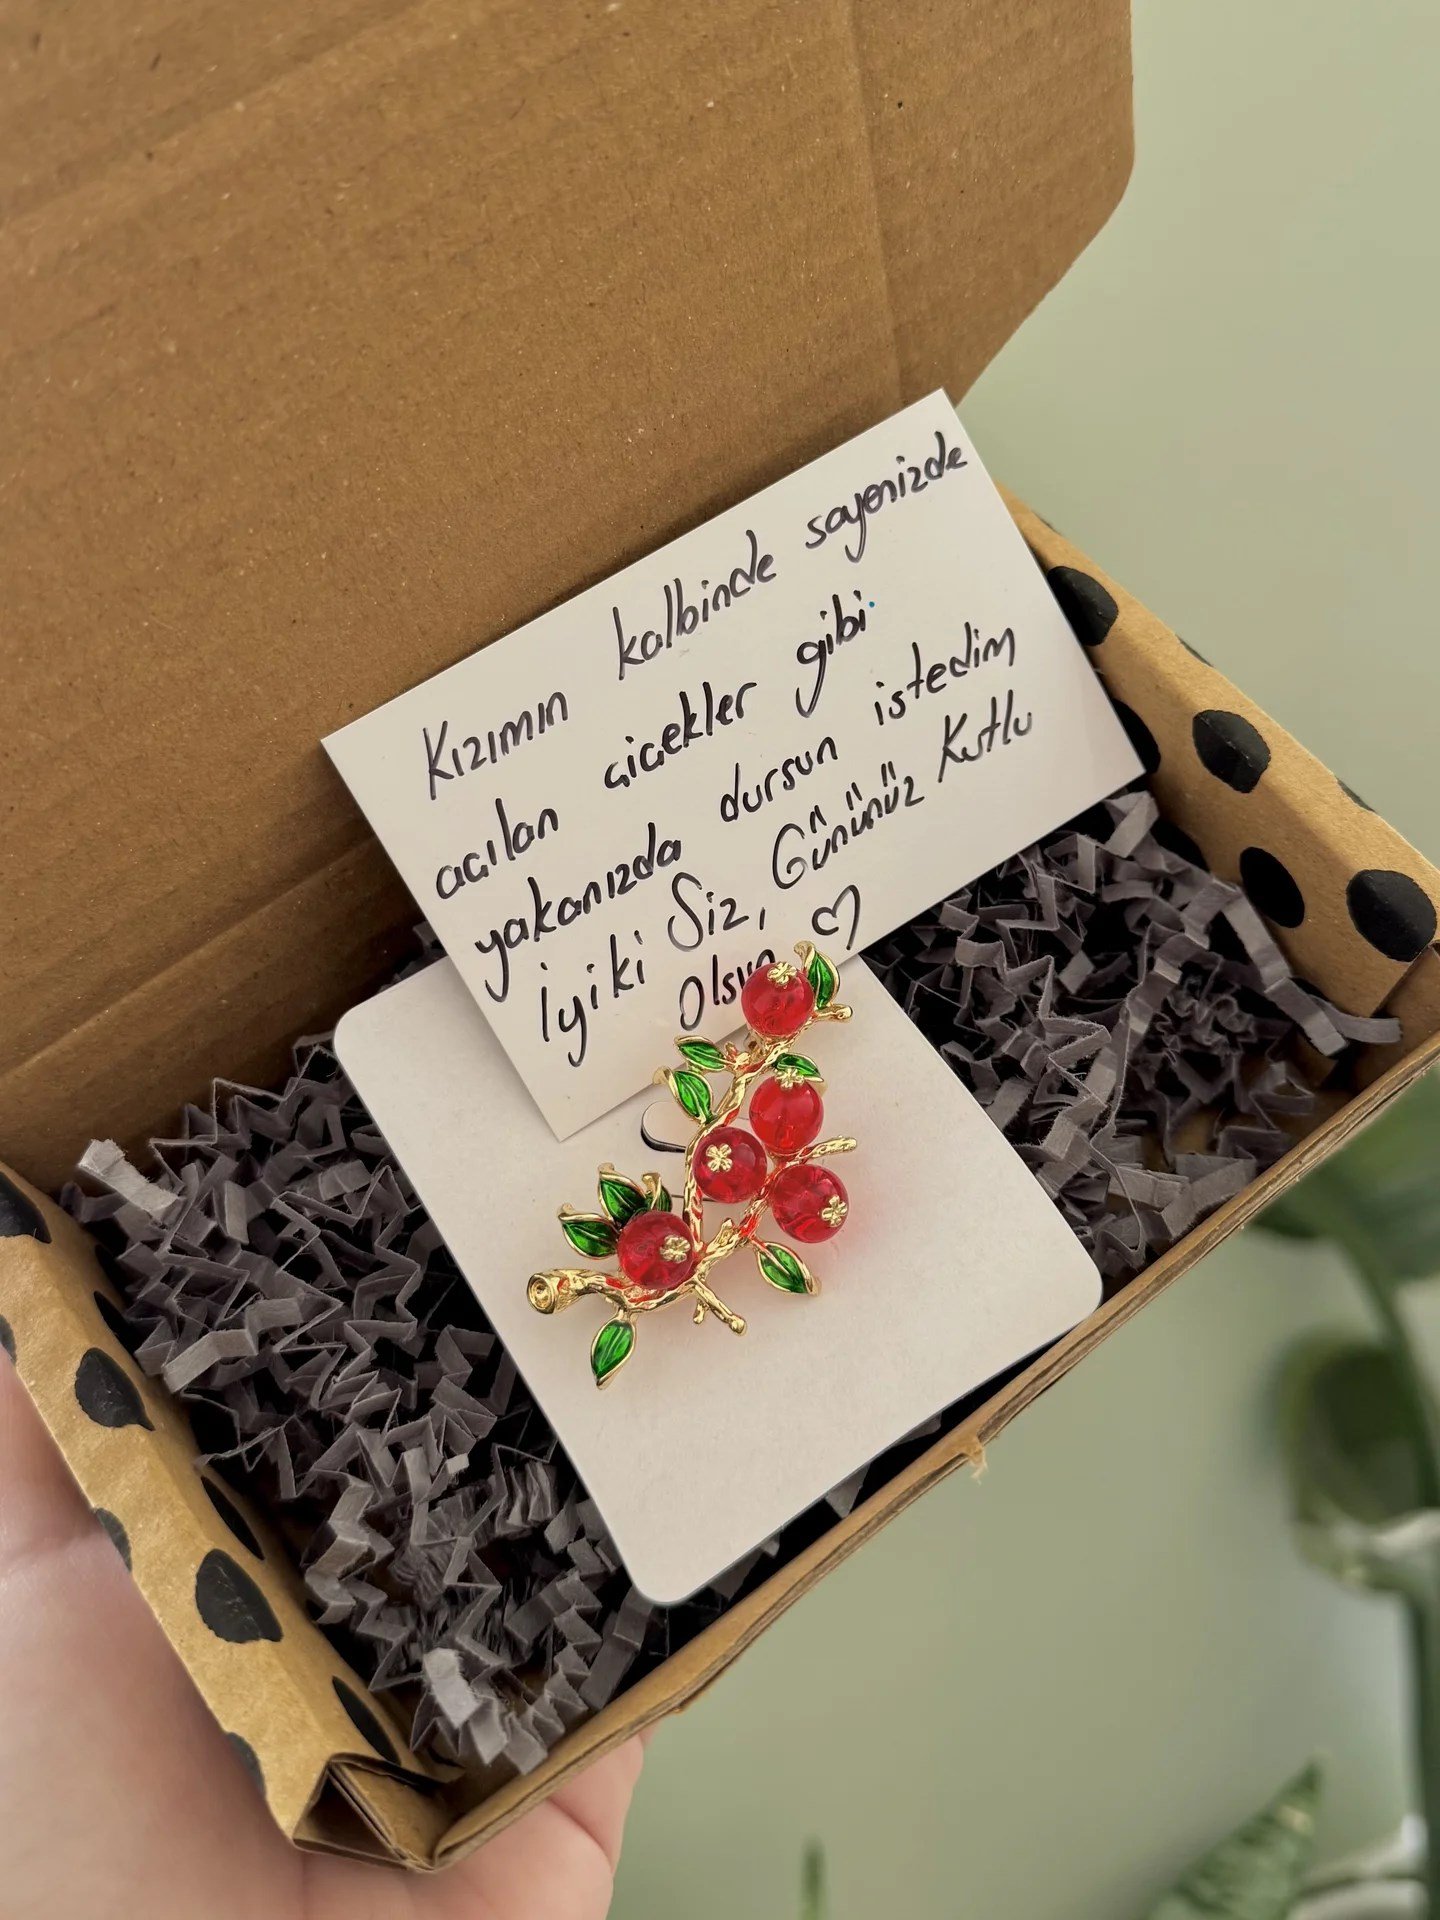 Kızımın kalbinde sayenizde
açılan çiçekler gibi
yakanızda dursun istedim
İyiki Siz, Gününüz Kutlu
Olsun ♡